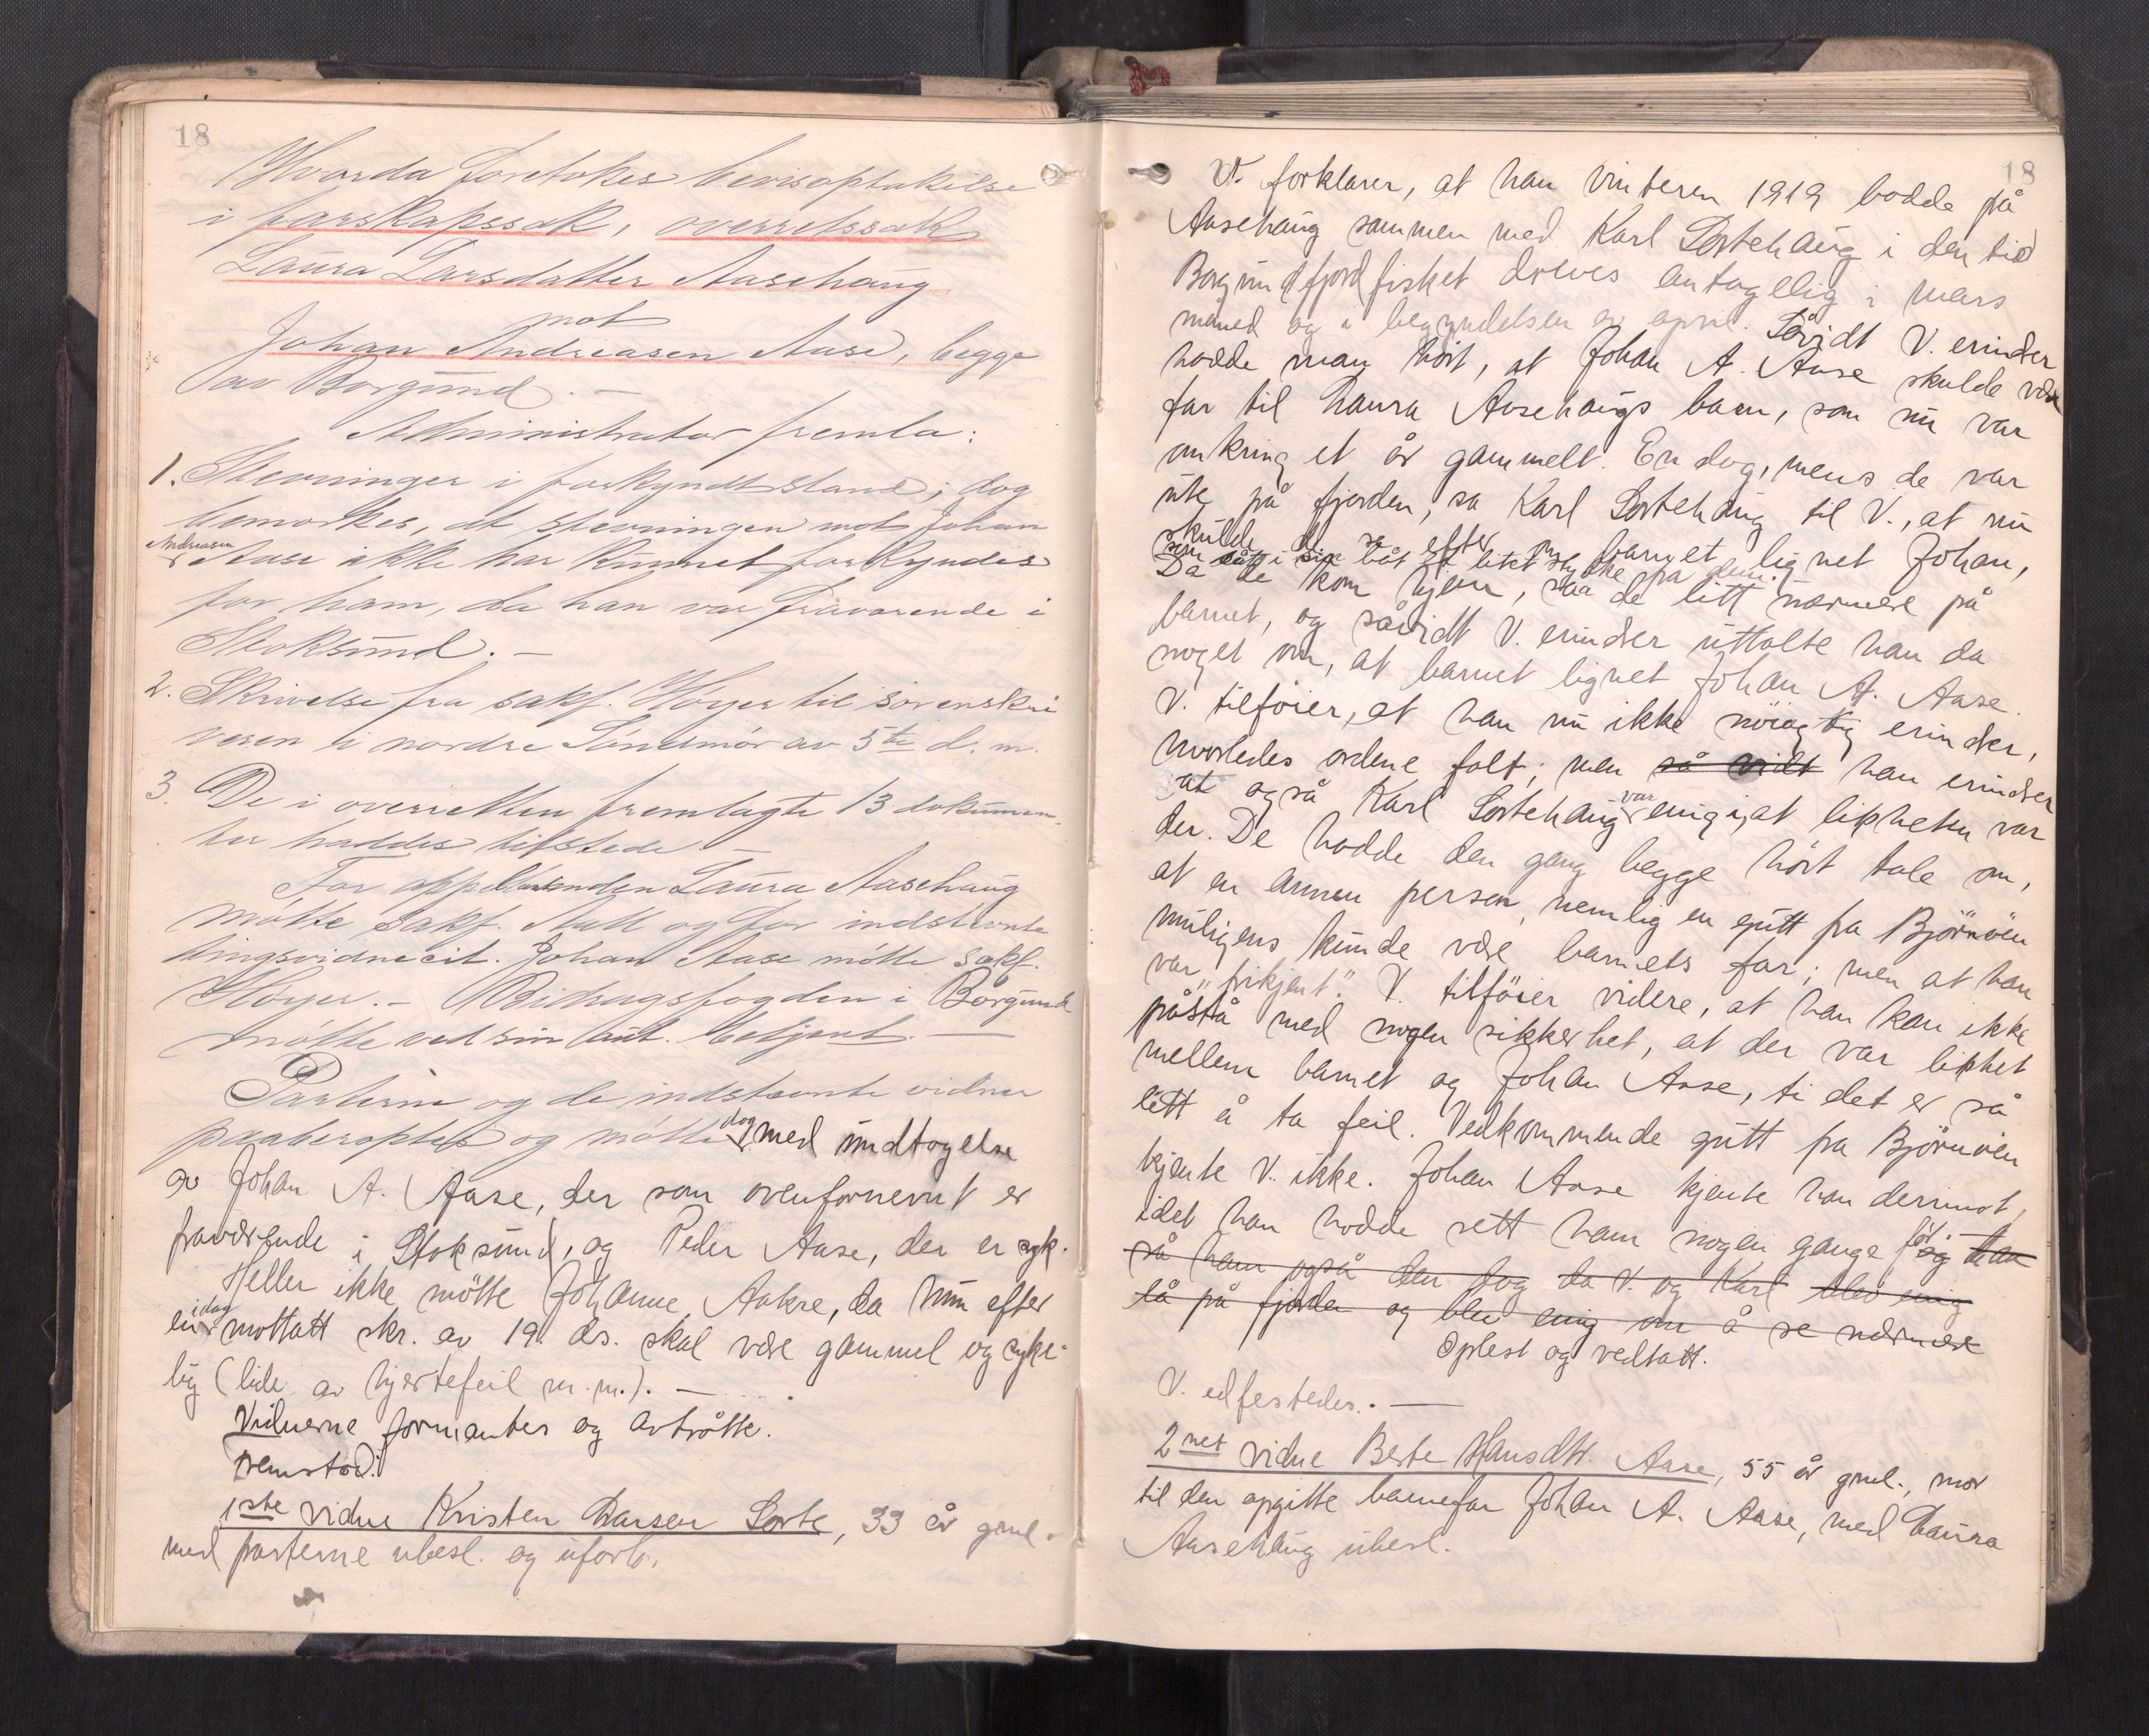 18
Hvorda foretokes bevisoptakelse
i farskapssak, overretssak
Laura Larsdatter Aasehaug
mot
Johan Andreasen Aase, begge
av Borgund. —
Administrator fremla:
1. Stevninger i forkyndt stand; dog
bemerkes, at stevningen mot Johan
Andreasen
Aase ikke har kunnet forkyndes
for ham, da han var fraværende i
Stoksund. —
2. Skrivelse fra sakf. Høyer til sorenskri
veren i nordre Søndmør av 5te d. m.
3. De i overretten fremlagte 13 dokumen-
ter haddes tilstede —
For appellanden Laura Aasehaug
møtte sakf. Aall og for indstevnte
tingsvidnecit. Johan Aase møtte sakf.
Høyer. — Bidragsfogden i Borgund
møtte ved sin aut. betjent. —
Parterne og de indstevnte vidner
dog
paaberoptes og møtte med undtagelse
av Johan A. Aase, der som ovenfornevnt er
fraværende i Stoksund, og Peder Aase, der er syk.
Heller ikke møtte Johanne Aakre, da hun efter
idag
en mottatt skr. av 19. ds. skal være gammel og syke-
lig (lide av hjertefeil m. m.). —
Vidnerne formantes og avtrådte.
Fremstod:
1ste vidne Kristen Larsen Sorte, 33 år gml.
med parterne ubesl. og uforb.
18
V. forklarer, at han vinteren 1919 bodde på
Aasehaug sammen med Karl Sortehaug i den tid
Borgundfjordfisket dreves antagelig i mars
måned og i begyndelsen av april. Såvidt V. erindrer
hadde man hørt, at Johan A. Aase skulde være
far til Laura Aasehaugs barn, som nu var
omkring et år gammelt. En dag, mens de var
ute på fjorden, sa Karl Sortehaug til V., at nu
skulde de se efter om barnet lignet Johan,
som i sin båt et litet stykke fra dem.
Da de kom hjem, saa de litt nærmere på
barnet, og såvidt V. erindrer uttalte han da
noget om, at barnet lignet Johan A. Aase.
V. tilføier, at han nu ikke nøiagtig erindrer,
hvorledes ordene falt; men så vidt han erindrer
var
at også Karl Sortehaug enig i, at likheten var
der. De hadde den gang begge hørt tale om,
at en annen person, nemlig en gutt fra Bjørnøen
muligens kunde være barnets far; men at han
var "frikjent". V. tilføier videre, at han kan ikke
påstå med nogen sikkerhet, at der var likhet
mellem barnet og Johan Aase, ti det er så
lett å ta feil. Vedkommende gutt fra Bjørnøen
kjente V. ikke. Johan Aase kjente han derimot,
idet han hadde sett ham nogen gange før. — og han
så ham også den dag da V. og Karl blev enig
lå på fjorden og blev enig om å se nærmere
Oplest og vedtatt.
V. edfestedes. —
2net vidne Berte Hansdtr. Aase, 55 år gml., mor
til den opgitte barnefar Johan A. Aase, med Laura
Aasehaug ubesl.